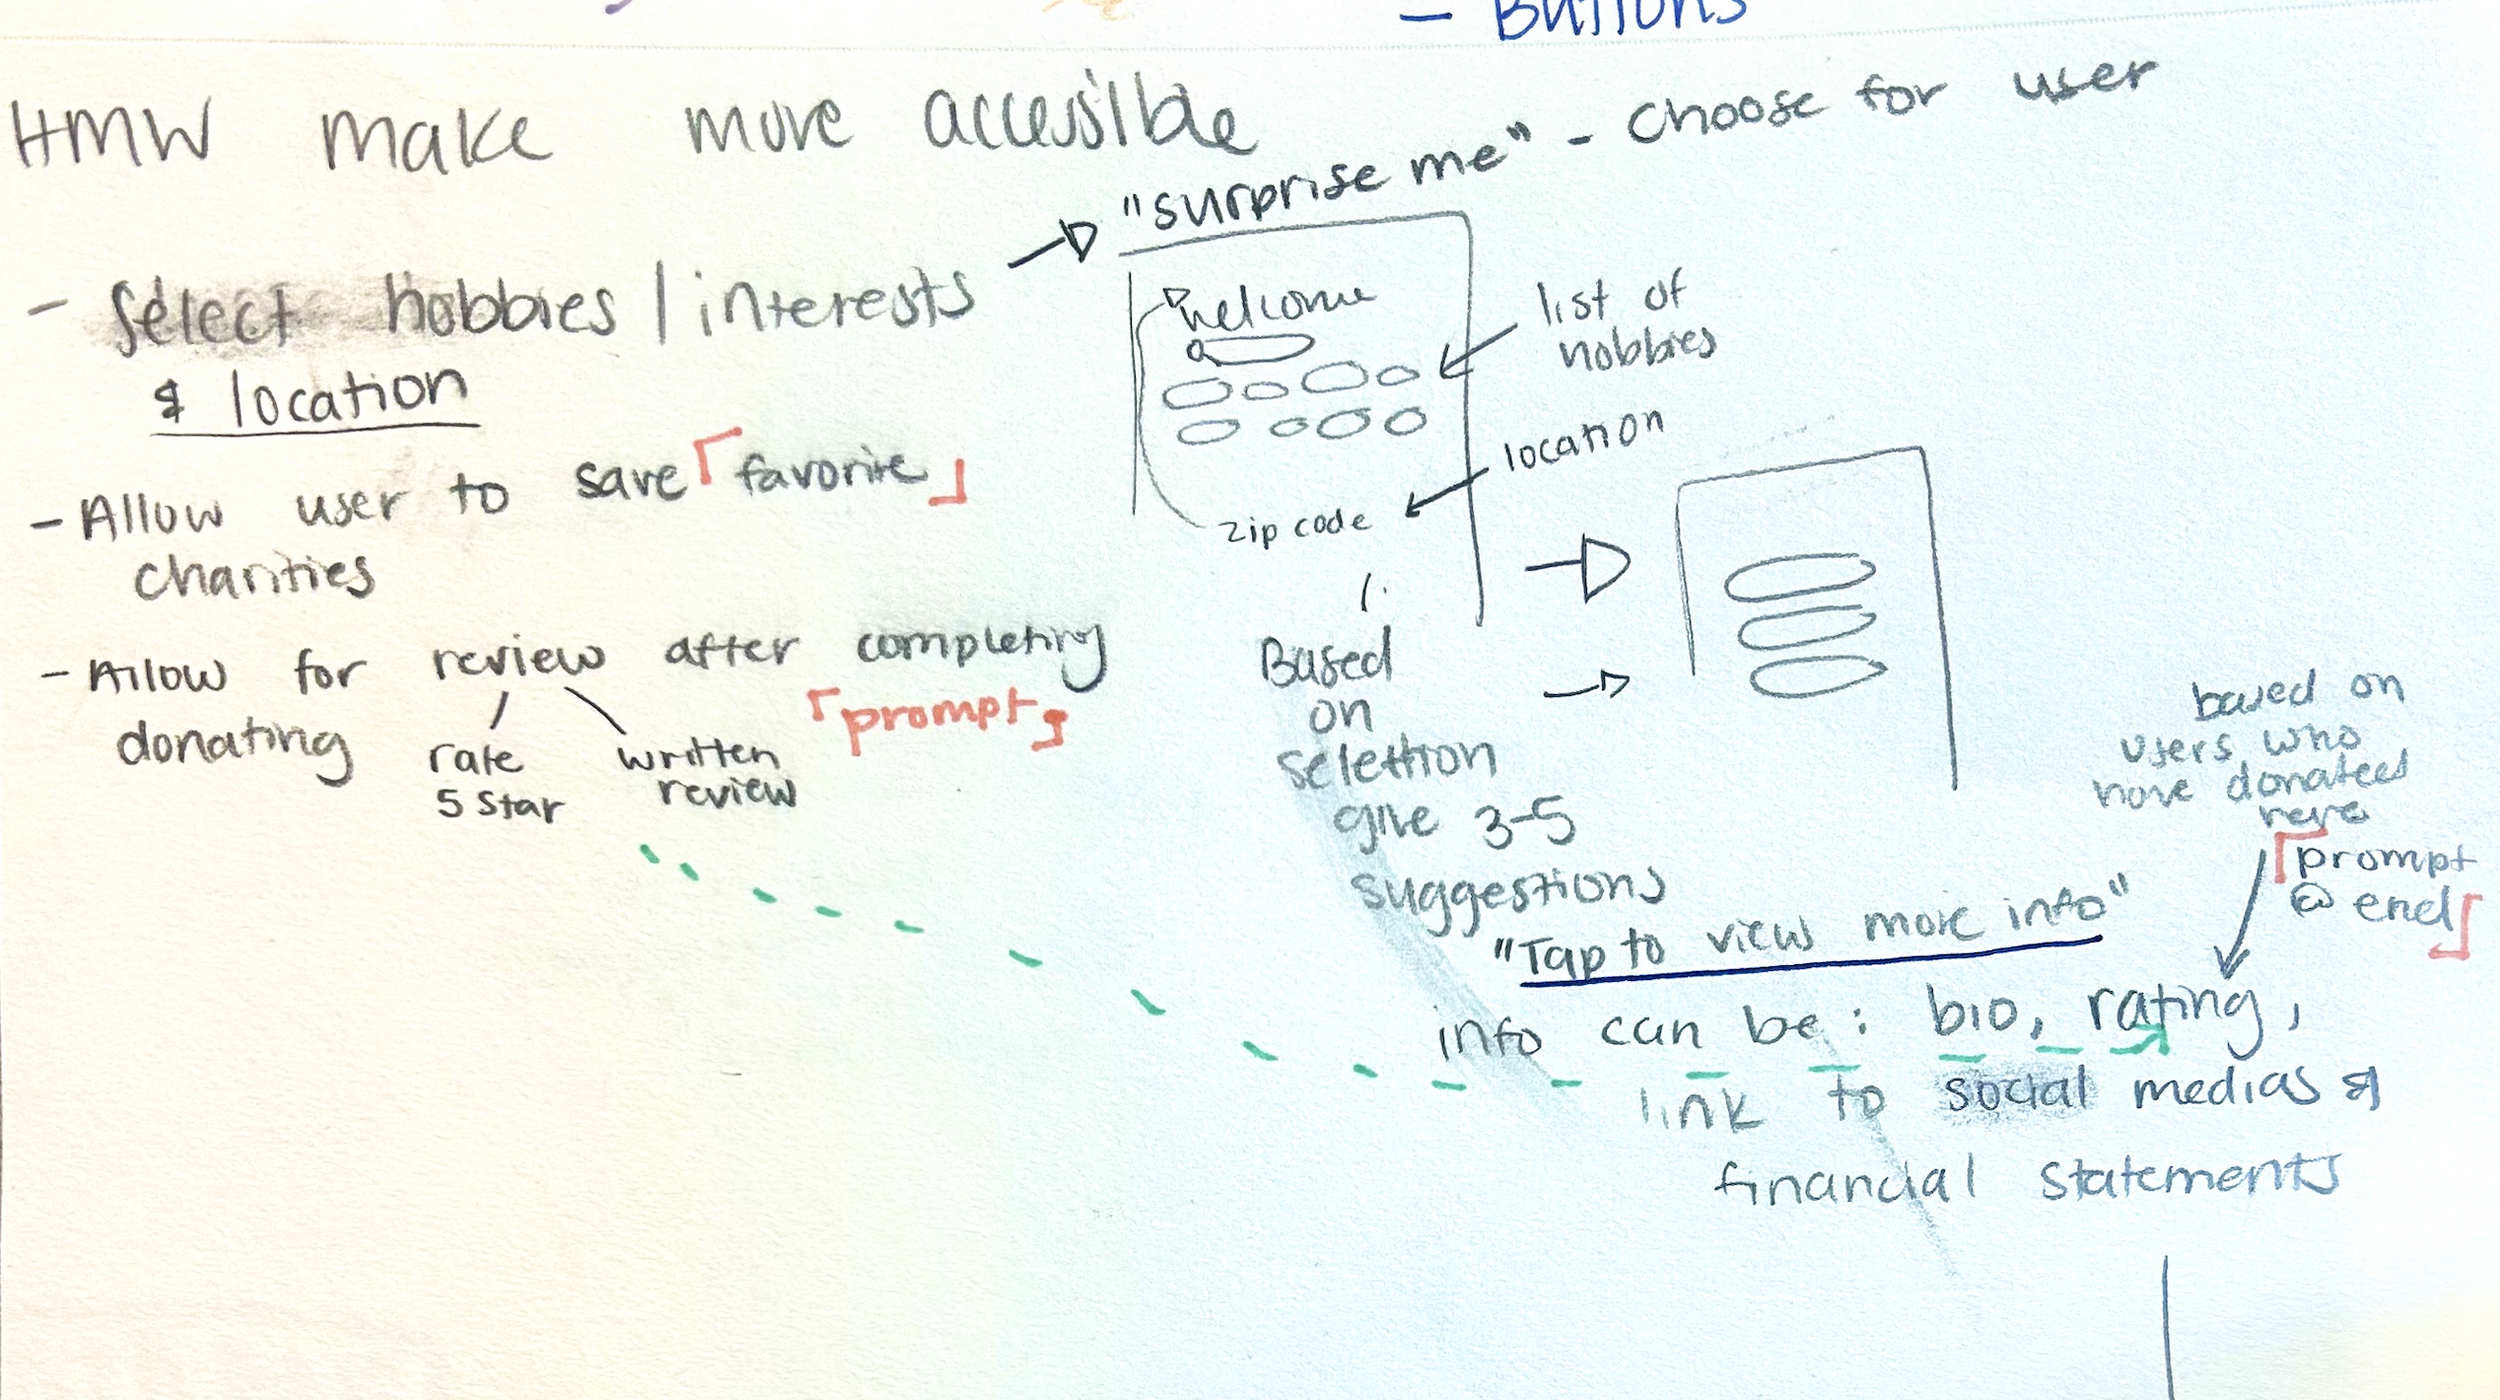 - Buttons
HMW make more accessible
"surprise me" - choose for user
- Select hobbies / interests
& location
- Allow user to save「favorite」
charities
- Allow for review after completing
donating
「prompt」
rate
5 star
written
review
welcome
list of
hobbies
location
zip code
Based
on
selection
give 3-5
suggestions
"Tap to view more info"
based on
users who
have donated
here
「prompt
@ end」
info can be: bio, rating,
link to social medias &
financial statements